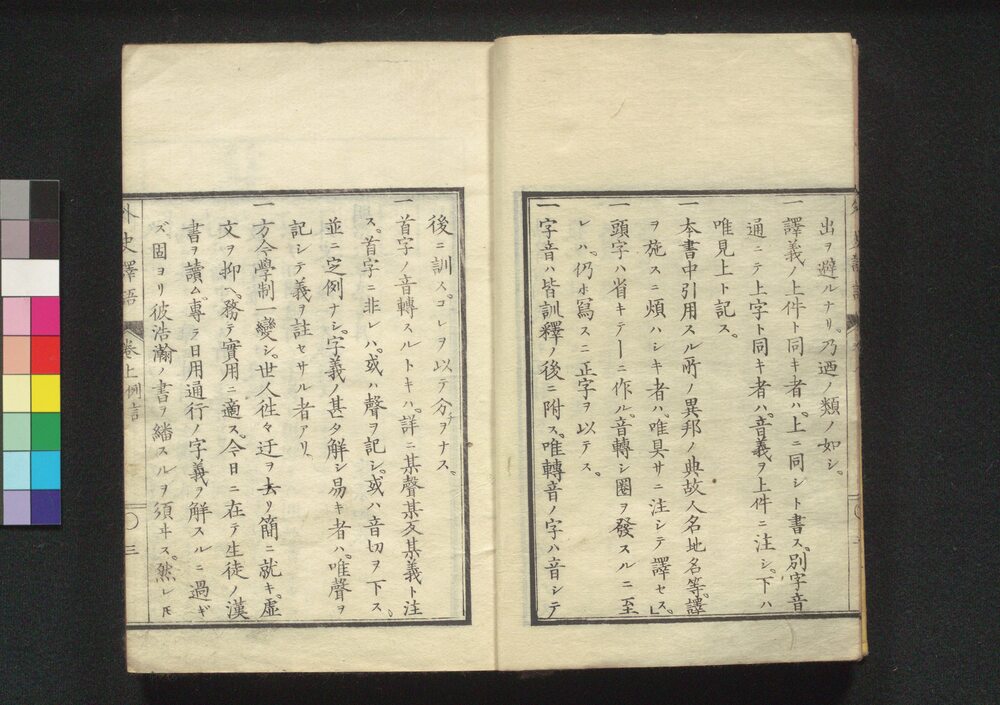 出ヲ避ルナリ。乃迺ノ類ノ如シ。
一譯義ノ上件ト同キ者ハ。上ニ同シト書ス。別字音
通ニテ上字ト同キ者ハ。音義ヲ上件ニ注シ。下ハ
唯見上ト記ス。
一本書中引用スル所ノ異邦ノ典故人名地名等。譯
ヲ施スニ煩ハシキ者ハ。唯具サニ注シテ譯セス。
一頭字ハ省キテ｜ニ作ル。音轉シ圏ヲ發スルニ至
レハ。仍ホ寫スニ正字ヲ以テス。
一字音ハ皆訓釋ノ後ニ附ス。唯轉音ノ字ハ音シテ
後ニ訓ス。コレヲ以テ分チヲナス。
一首字ノ音轉スルトキハ。詳ニ某聲某反某義ト注
ス。首字ニ非レハ。或ハ聲ヲ記シ。或ハ音切ヲ下ス。
並ニ定例ナシ。字義甚タ解シ易キ者ハ。唯聲ヲ
記シテ義ヲ註セサル者アリ。
一方今學制一變シ。世人往々迂ヲ去リ簡ニ就キ。虚
文ヲ抑ヘ。務テ實用ニ適ス。今日ニ在テ生徒ノ漢
書ヲ讀ム。專ラ日用通行ノ字義ヲ解スルニ過ギ
ズ固ヨリ彼浩瀚ノ書ヲ繙スルヲ須ヰス。然レ𪜈
外史譯語
卷上例言
三